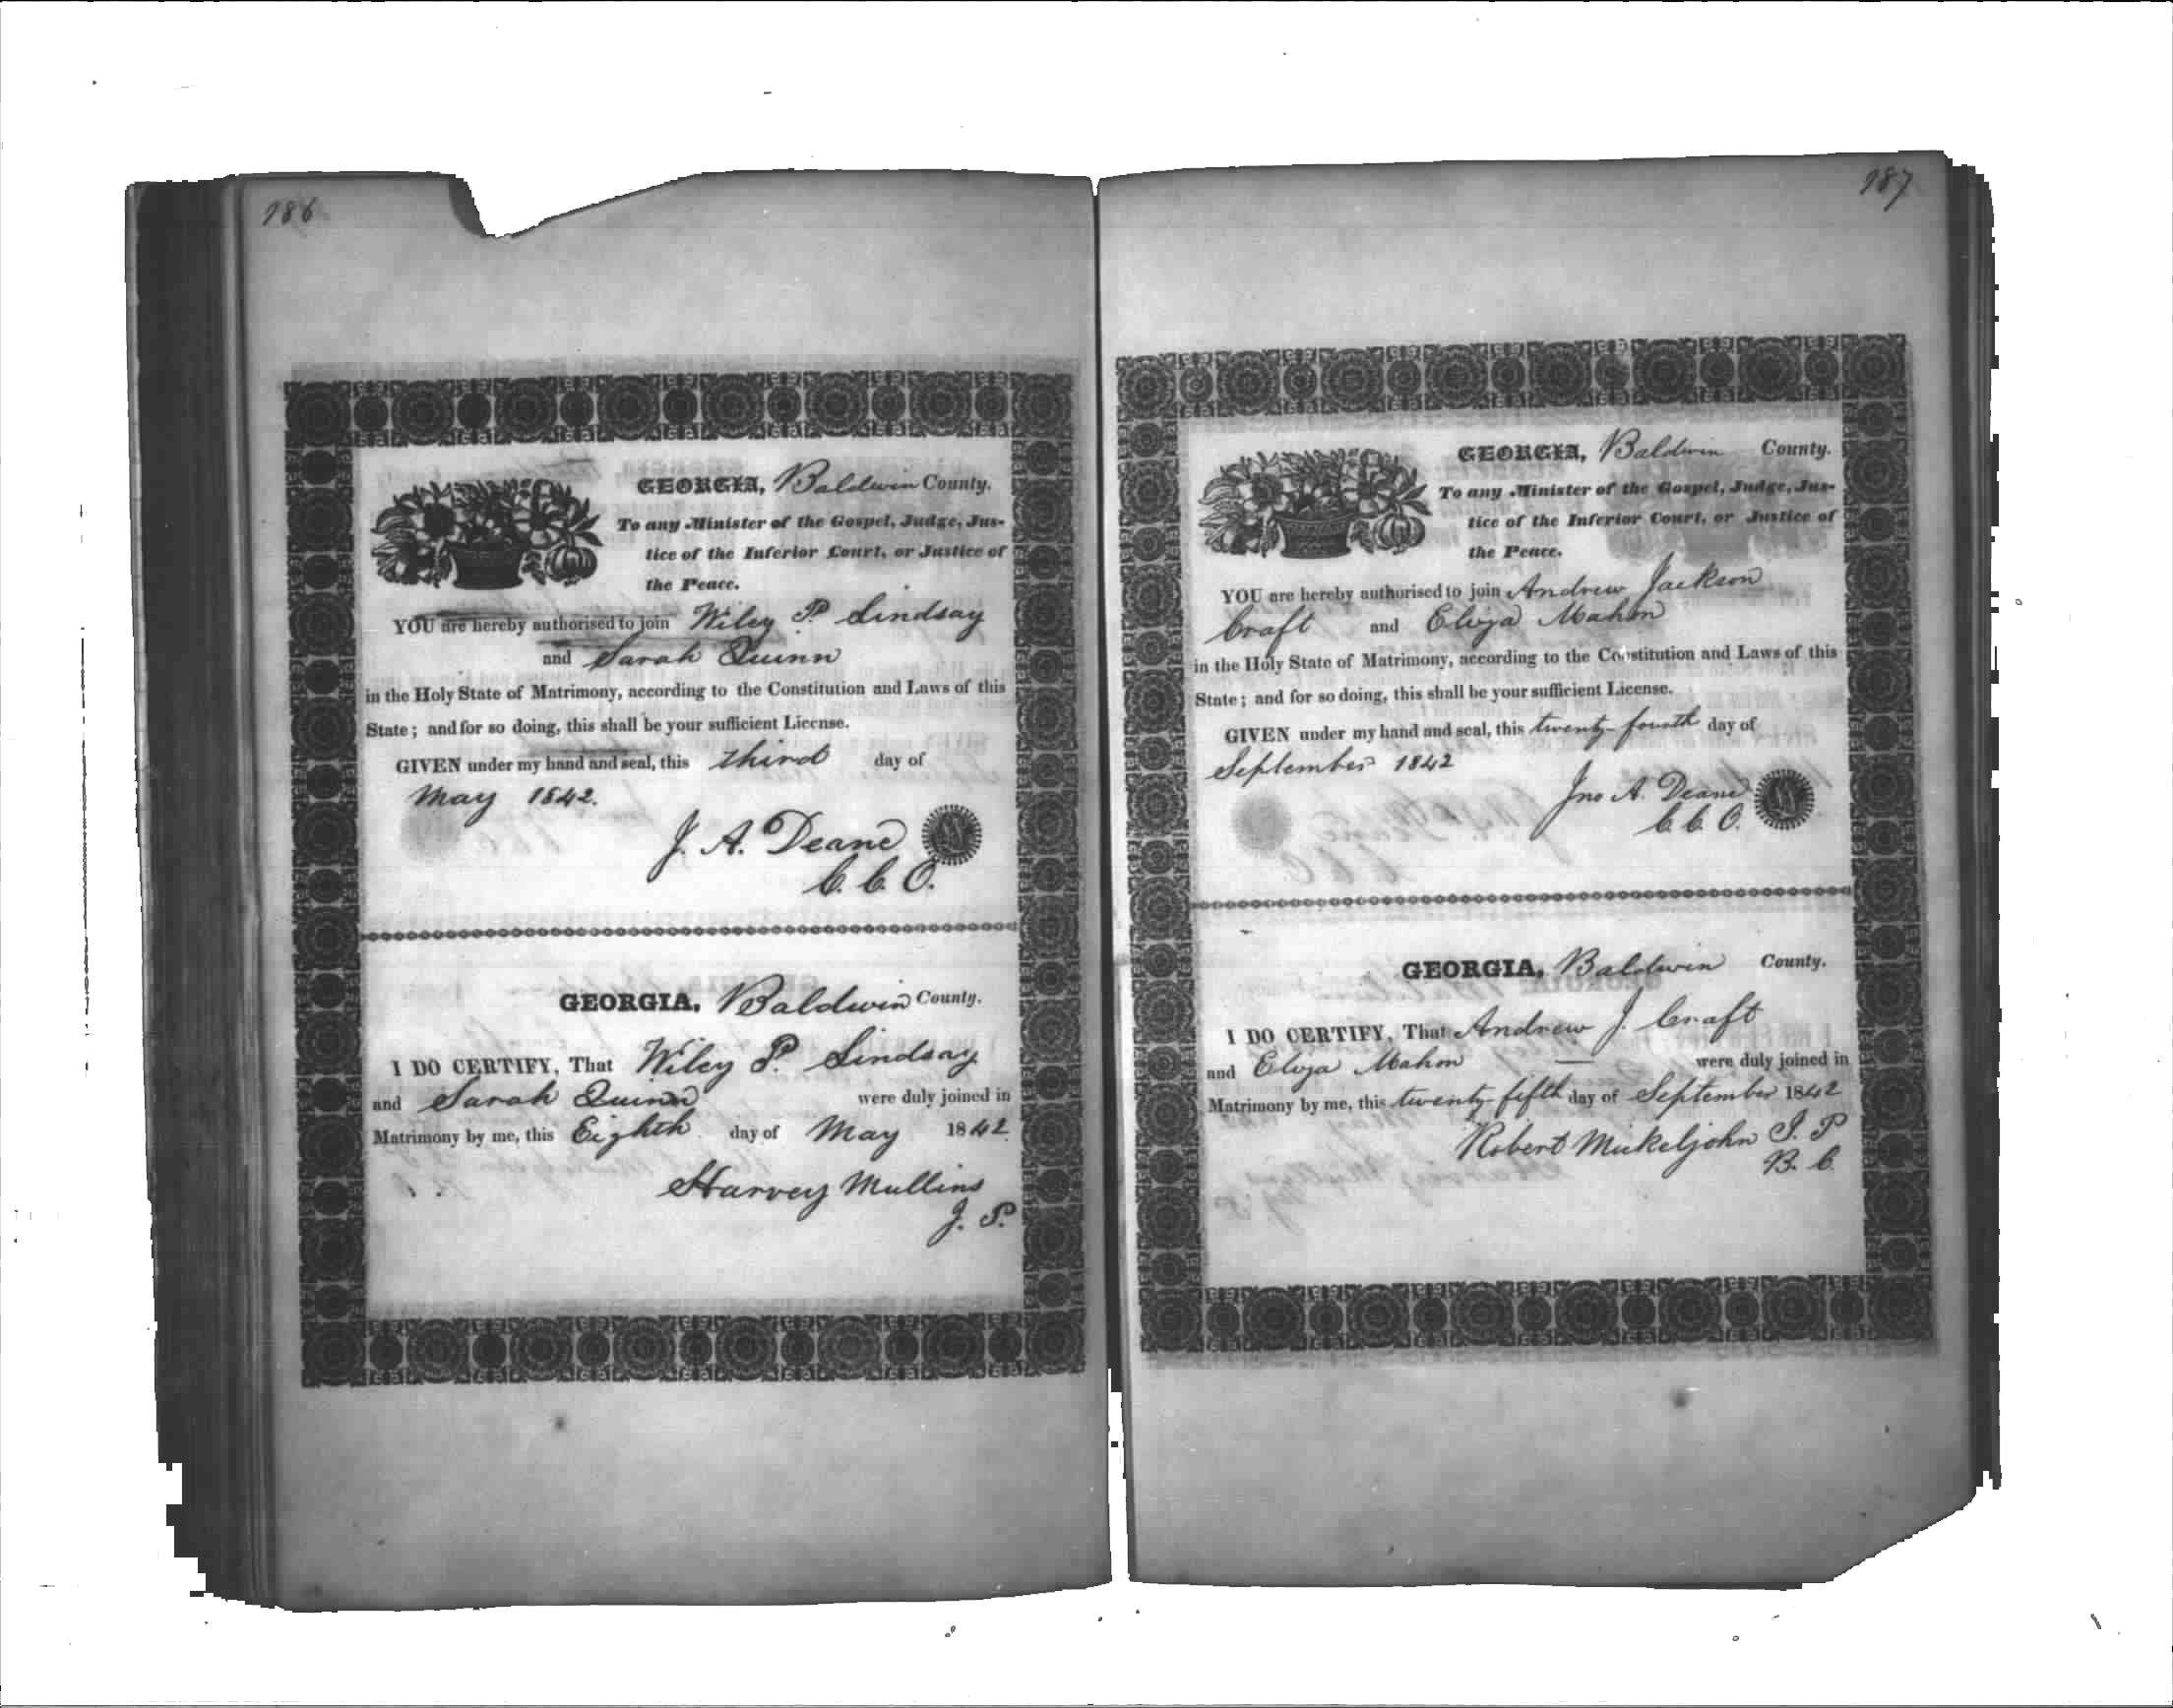 186
GEORGIA, Baldwin County.
To any Minister of the Gospel, Judge, Jus-
tice of the Inferior Court, or Justice of
the Peace.
YOU are hereby authorised to join Wiley P. Lindsay
and Sarah Quinn
in the Holy State of Matrimony, according to the Constitution and Laws of this
State; and for so doing, this shall be your sufficient License.
GIVEN under my hand and seal, this third day of
May 1842.
J. A. Deane
C. C. O.
GEORGIA, Baldwin County.
I DO CERTIFY, That Wiley P. Lindsay
and Sarah Quinn were duly joined in
Matrimony by me, this Eighth day of May 1842
Harvey Mullins
J. P.
187
GEORGIA, Baldwin County.
To any Minister of the Gospel, Judge, Jus-
tice of the Inferior Court, or Justice of
the Peace.
YOU are hereby authorised to join Andrew Jackson
Craft and Eliza Mahon
in the Holy State of Matrimony, according to the Constitution and Laws of this
State; and for so doing, this shall be your sufficient License.
GIVEN under my hand and seal, this twenty-fourth day of
September 1842
Jno A. Deane
C. C. O.
GEORGIA, Baldwin County.
I DO CERTIFY, That Andrew J. Craft
and Eliza Mahon were duly joined in
Matrimony by me, this twenty-fifth day of September 1842
Robert Mickeljohn J. P
B. C.